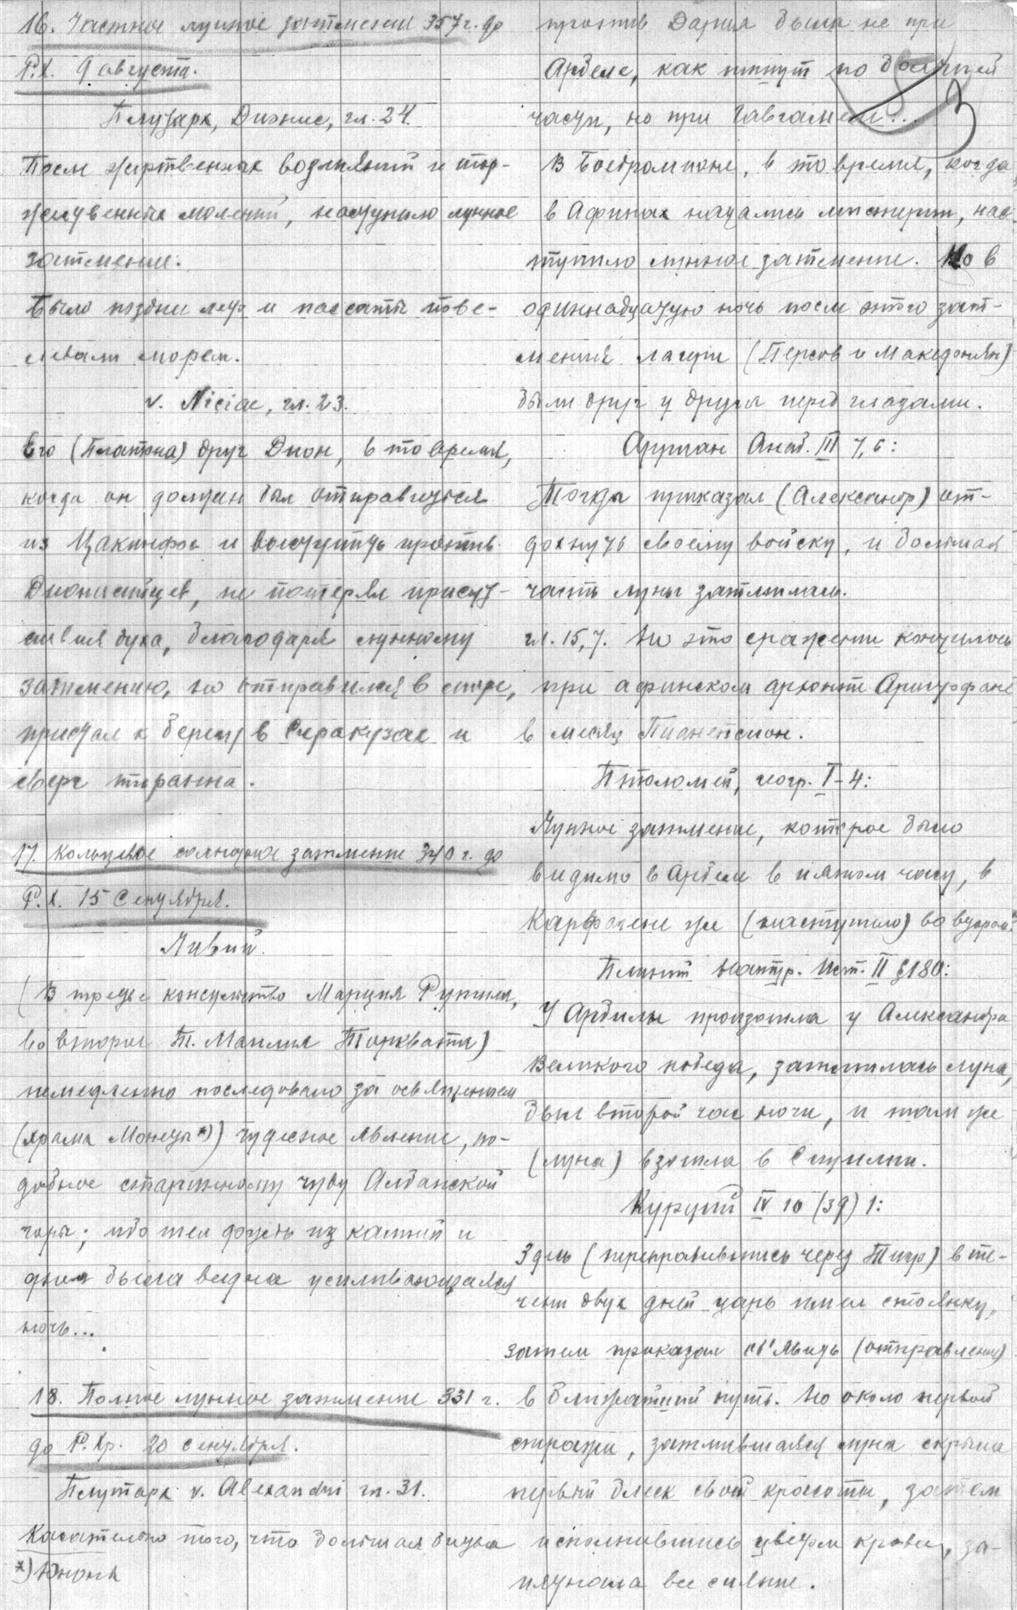 16. Частное лунное затмение 357 г. до
Р.Х. 9 августа.
Плутарх, Дионис, гл. 24.
После жертвенных возлияний и тор-
жественных молений, наступило лунное
затмение.
Было позднее лето и пассаты пове-
левали морем.
v. Niciae, гл. 23.
Его (Платона) друг Дион, в то время,
когда он должен был отправиться
из Цакинфа и выступить против
Дионисийцев, не потерял присут-
ствия духа, благодаря лунному
затмению, но отправился в море,
пристал к берегу в Сиракузах и
сверг тиранна.
17. Кольцевое солнечное затмение 340 г. до
Р.Х. 15 Сентября.
Ливий.
(В третье консульство Марция Рутила,
во второе Т. Манлия Торквата)
немедленно последовало за освящением
(храма Монеты *)) чудесное явление, по-
добное старинному чуду Албанской
горы; ибо шел дождь из камней и
днем была видна усиливающаяся
ночь...
18. Полное лунное затмение 331 г.
до Р.Хр. 20 сентября.
Плутарх v. Alexandri гл. 31.
Касательно того, что большая битва
*) Юнона
против Дария была не при
Арбеле, как пишут по большей
части, но при Гавгамелах...
В Боедромионе, в то время, когда
в Афинах начались мистерии, нас-
тупило лунное затмение. Но в
одиннадцатую ночь после этого зат-
мения лагери (Персов и Македонян)
были друг у друга перед глазами.
Арриан Анаб. III 7,6:
Тогда приказал (Александр) от-
дохнуть своему войску, и большая
часть луны затмилась.
гл. 15,7. Но это сражение кончилось
при афинском архонте Аристофане
в месяц Пианепсион.
Птоломей, геогр. I-4:
Лунное затмение, которое было
видимо в Арбеле в пятом часу, в
Карфагене же (наступило) во втором.
Плиний Натур. Ист. II §180:
У Арбелы произошла у Александра
Великого победа, затмилась луна,
был второй час ночи, и там же
(луна) взошла в Сицилии.
Курций IV 10 (39) 1:
Здесь (переправившись через Тигр) в те-
чении двух дней царь имел стоянку,
затем приказал объявить (отправление)
в ближайший путь. Но около первой
стражи, затмившаяся луна скрыла
первый блеск своей красоты, затем
исполнившись цветом крови,
все сияние.